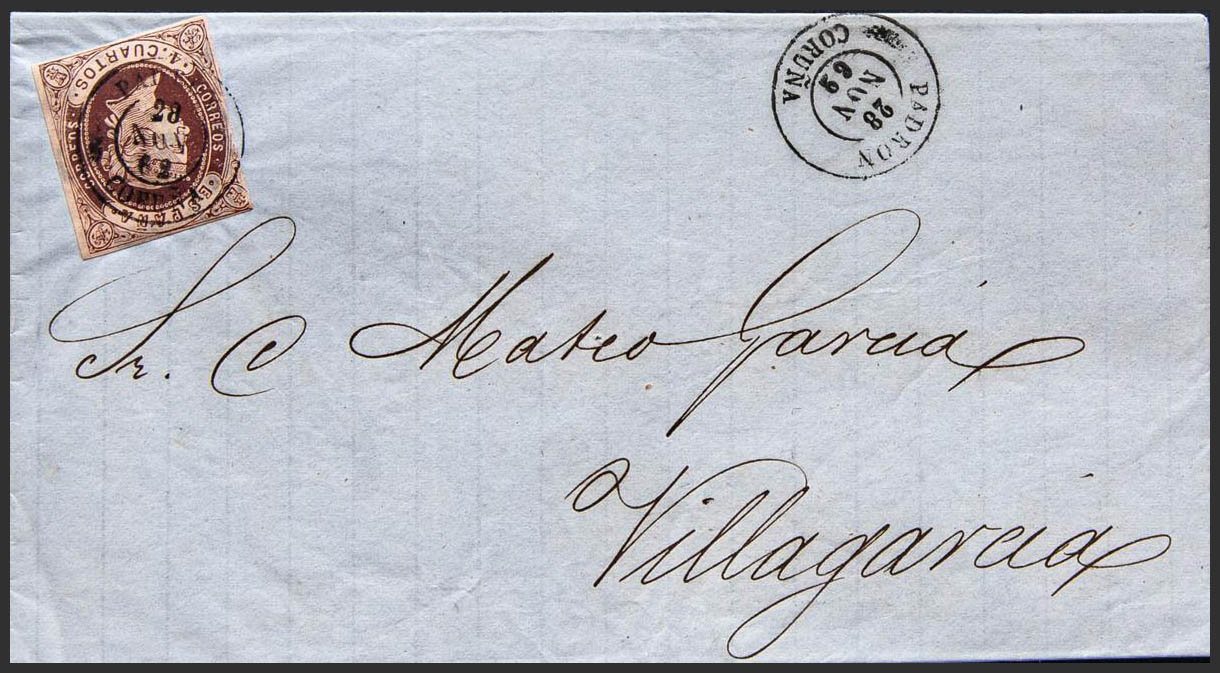 4. CUARTOS
CORREOS
CORREOS
ESPAÑA
28
NOV
62
CORUÑA
PADRON
28
NOV
62
CORUÑA
Sr. C Mateo Garcia
Villagarcia